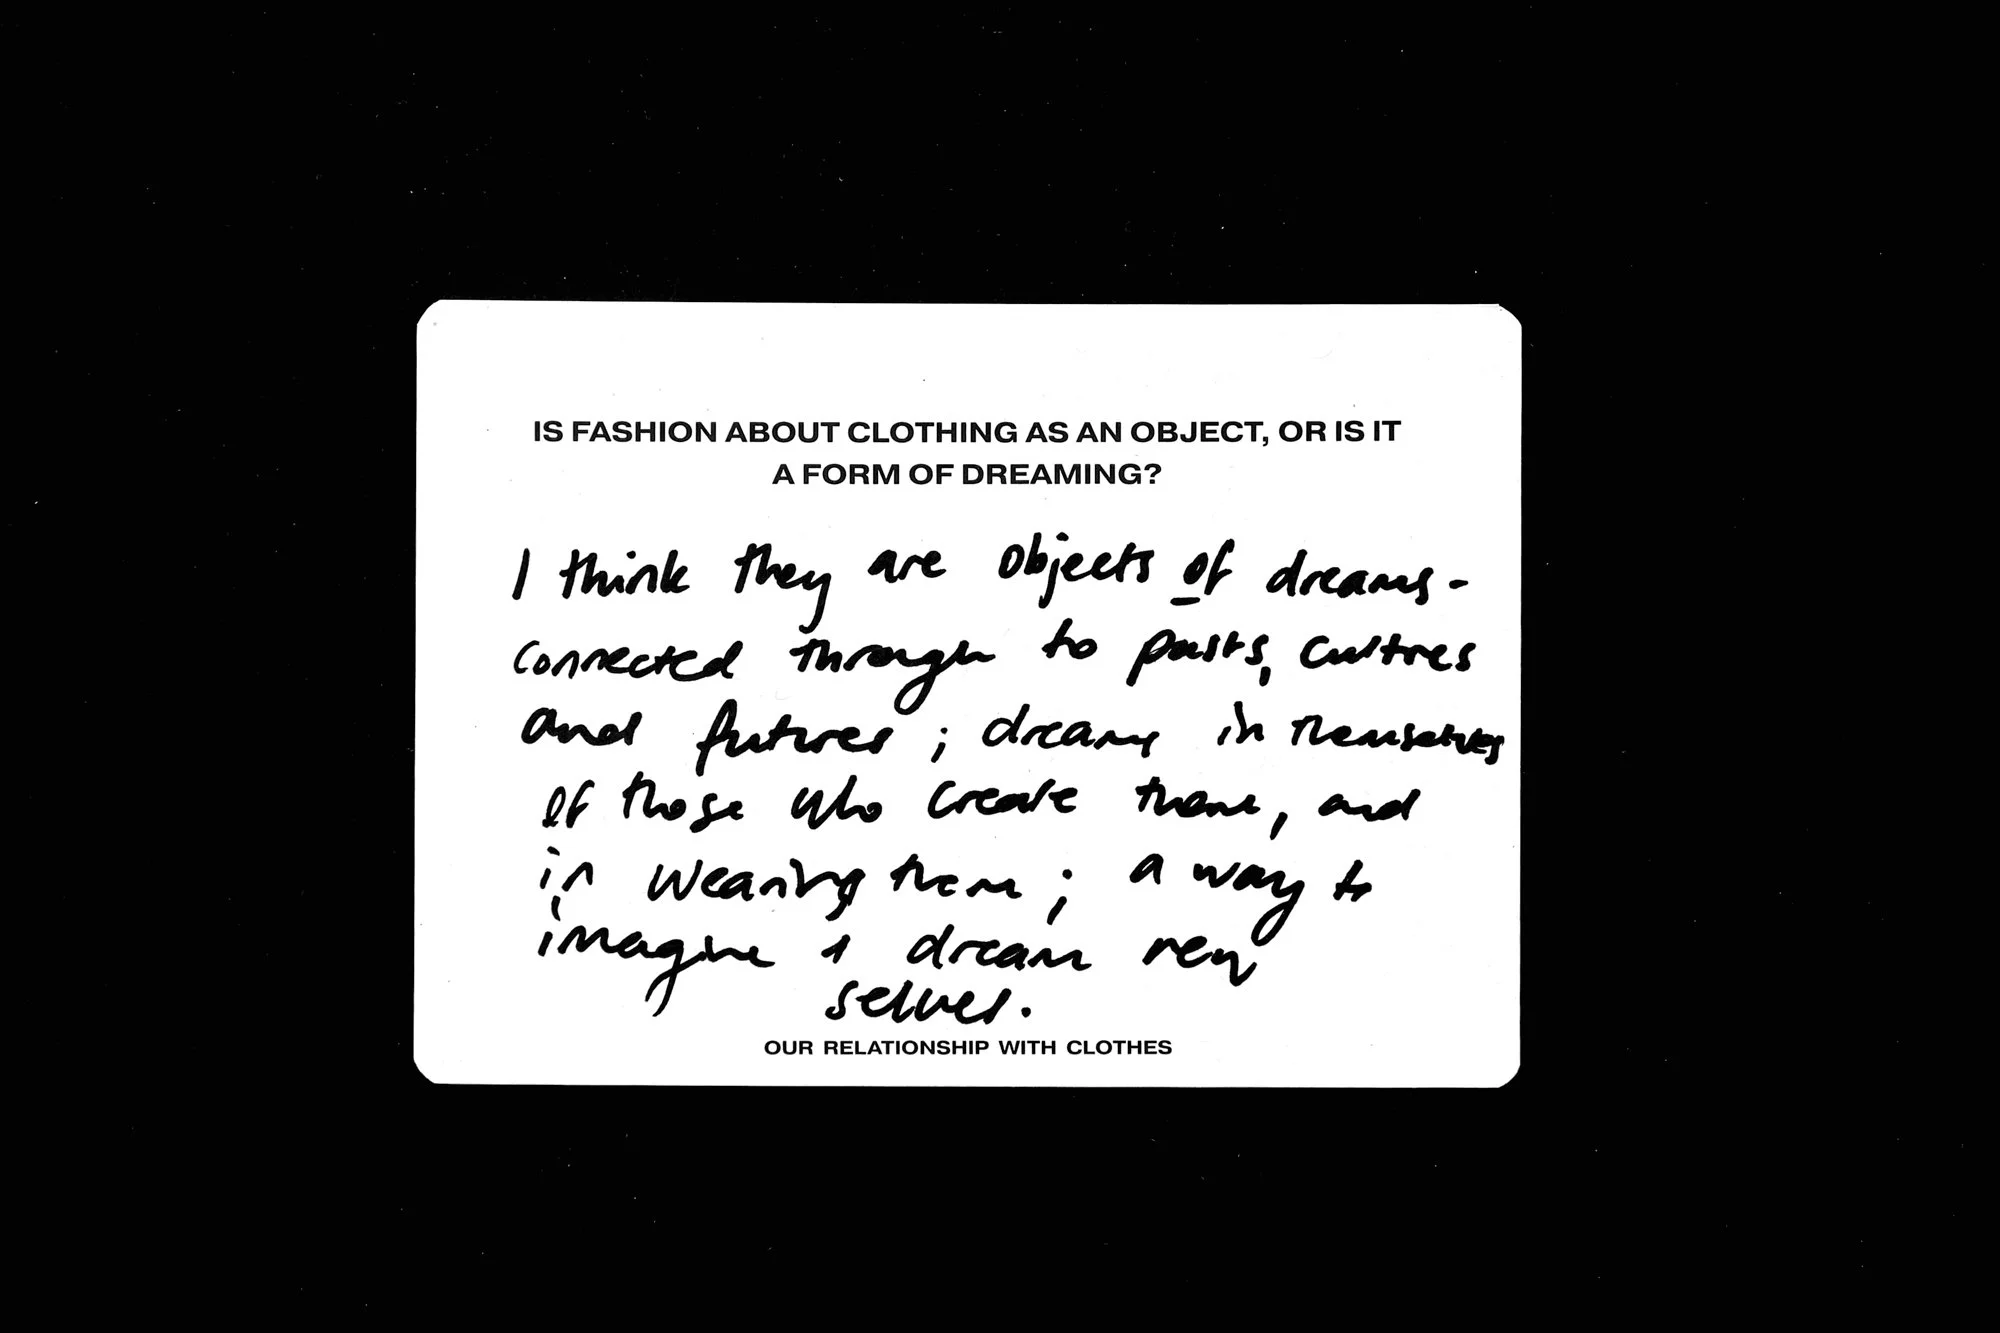 IS FASHION ABOUT CLOTHING AS AN OBJECT, OR IS IT
A FORM OF DREAMING?
I think they are objects of dreams -
connected through to pasts, cultres
and futures ; dreams in themselves
of those who create them, and
in wearing them ; a way to
imagine + dream new
selves.
OUR RELATIONSHIP WITH CLOTHES